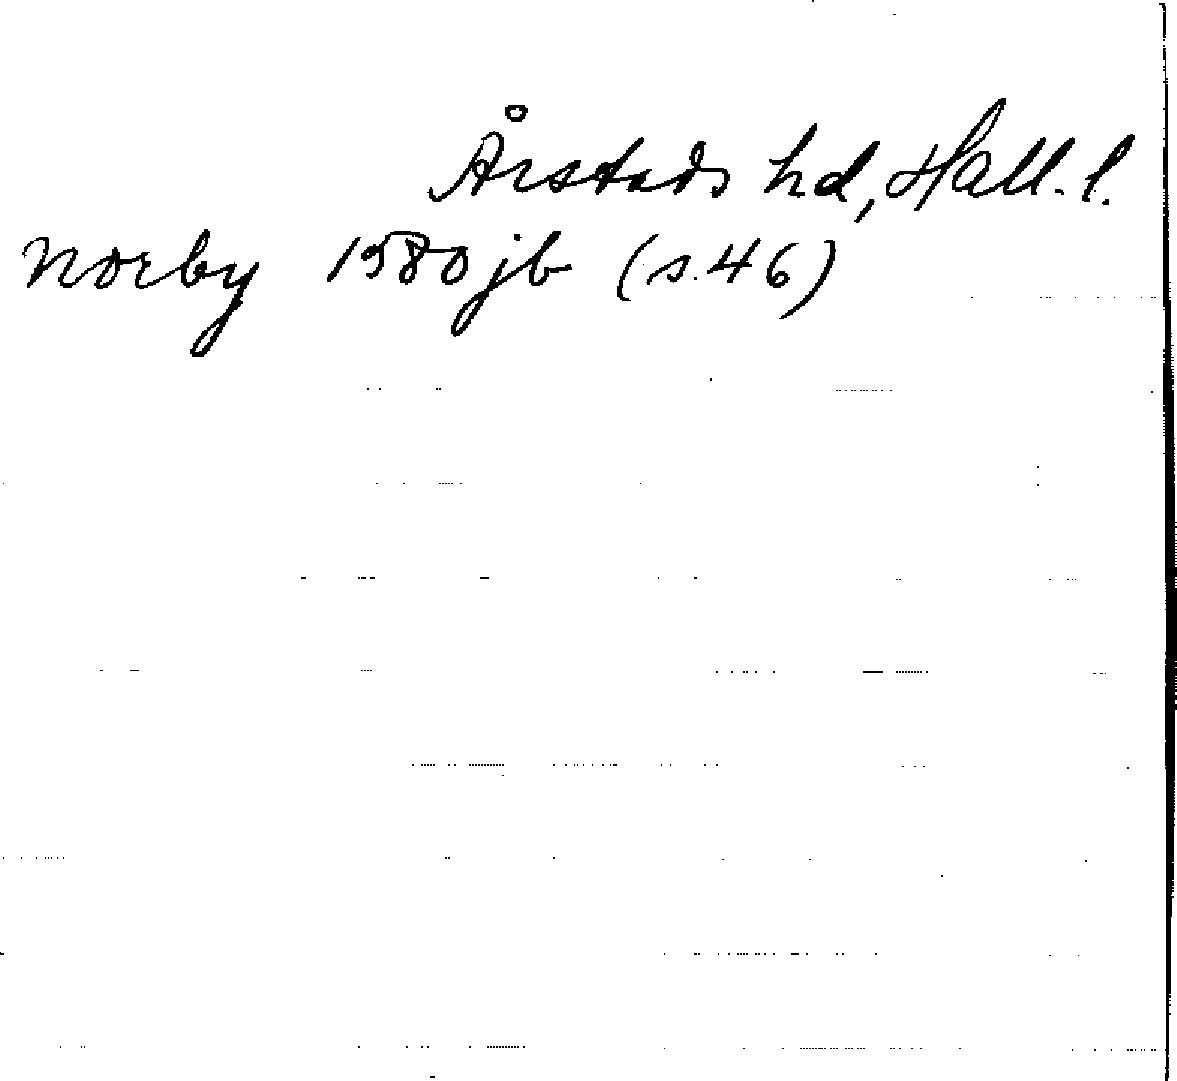 Årstads hd, Hall. l.
Norby 1580 jb (s. 46)